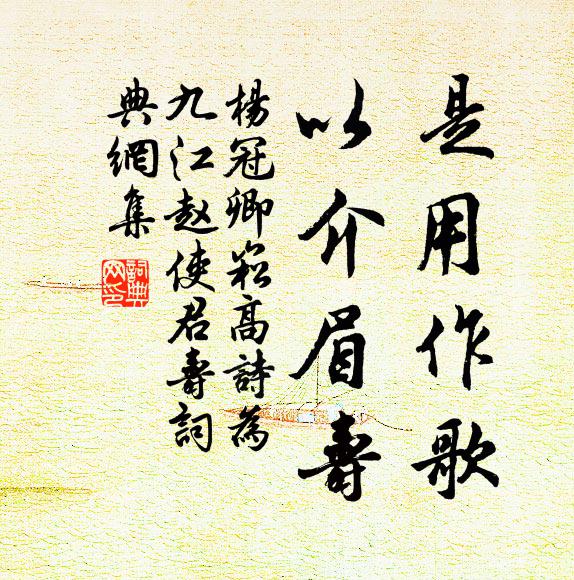 是用作歌
以介眉壽
楊冠卿崧高詩為
九江赵使君壽詞
典網集
詞典
网印